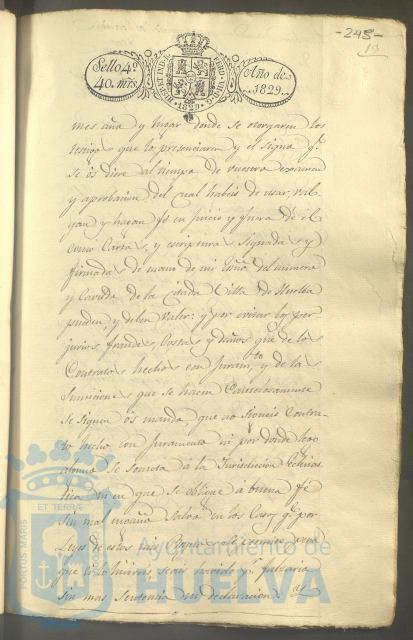 -245-
13
Sello 4º
40. mrs.
HISPET IND. R.
FERD. VII. D. G.
1829
Año de
1829.
mes año y lugar donde se otorgaren los
testigos que lo presenciaren y el signo q.
se os diere al tiempo de vuestro examen
y aprobacion del cual habeis de usar, val-
gan y hagan fe en juicio y fuera de el
como Cartas, y escripturas signadas y
firmadas de mano de mi Essno. del numero
y Cavildo de la citada Villa de Huelva
pueden, y deben valer: y por evitar los per-
juicios, fraudes, Costas y daños que de los
Contratos hechos con Juramto. y de las
Sumisiones que se hacen Cautelosamente
se siguen os mando, que no signeis Contra-
to hecho con Juramento ni por donde lego
alguno se someta a la Jurisdicion Eclesias-
tica ni en que se oblige a buena fé
sin mal engaño salvo en los Casos q. por
Leyes de estos mis Reynos
que si lo hicieres seais havido pr. falsario
sin mas sentencia ni declaracion
PORTUS MARIS
ET TERRÆ
Ayuntamiento de
HUELVA